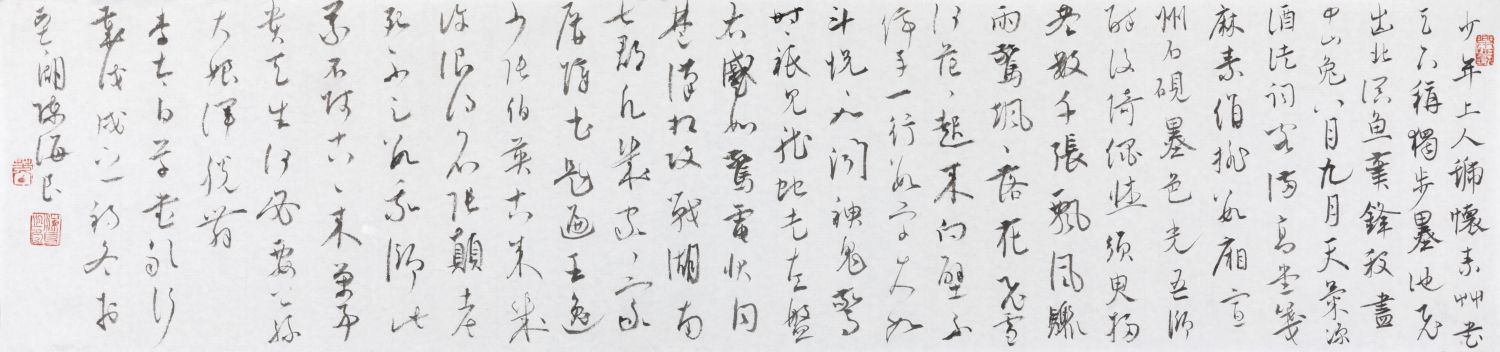 少年上人號懷素艸書
天下稱獨步墨池飛
出北溟魚筆鋒殺盡
中山兔八月九月天氣涼
酒徒詞客滿高堂箋
麻素絹排數廂宣
州石硯墨色光吾師
醉後倚繩床須臾掃
盡數千張飄風驟
雨驚颯々落花飛雪
何茫々起來向壁不
停手一行數字大如
斗恍々如聞神鬼驚
時々祇見龍蛇走左盤
右蹙如驚電狀同
楚漢相攻戰湖南
七郡凡幾家々家
屏障書題遍王逸
少張伯英古來幾
許浪得名張顛老
死不足數我師此
義不師古々來萬事
貴天生何必要公孫
大娘渾脫舞
李太白草書歌行
歲戊戌之初冬於
湖陳海良